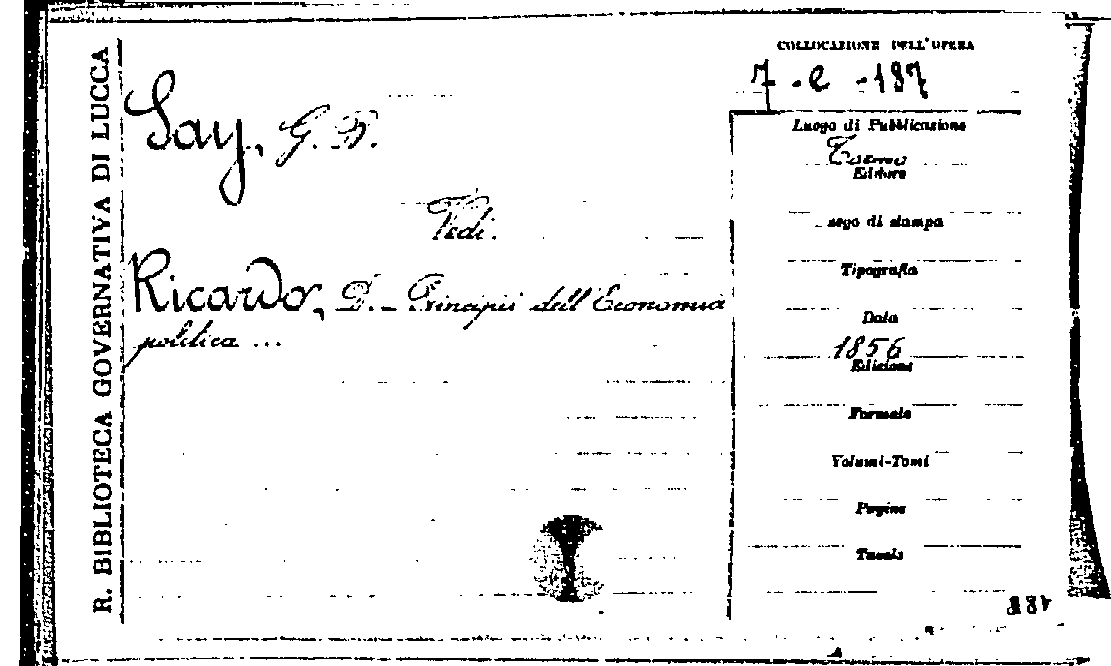 R. BIBLIOTECA GOVERNATIVA DI LUCCA
Say, G. B.
Vedi.
Ricardo, D. - Principii dell'Economia
politica ...
COLLOCAZIONE DELL'OPERA
7 - e - 187
Luogo di Pubblicazione
Torino
Editore
Luogo di stampa
Tipografia
Data
1856
Edizione
Formato
Volumi-Tomi
Pagine
Tavole